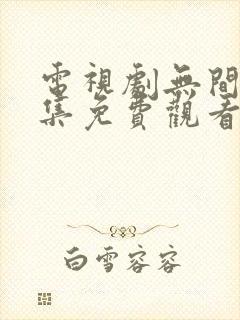 電視劇無間
集免費觀看
白雪容容